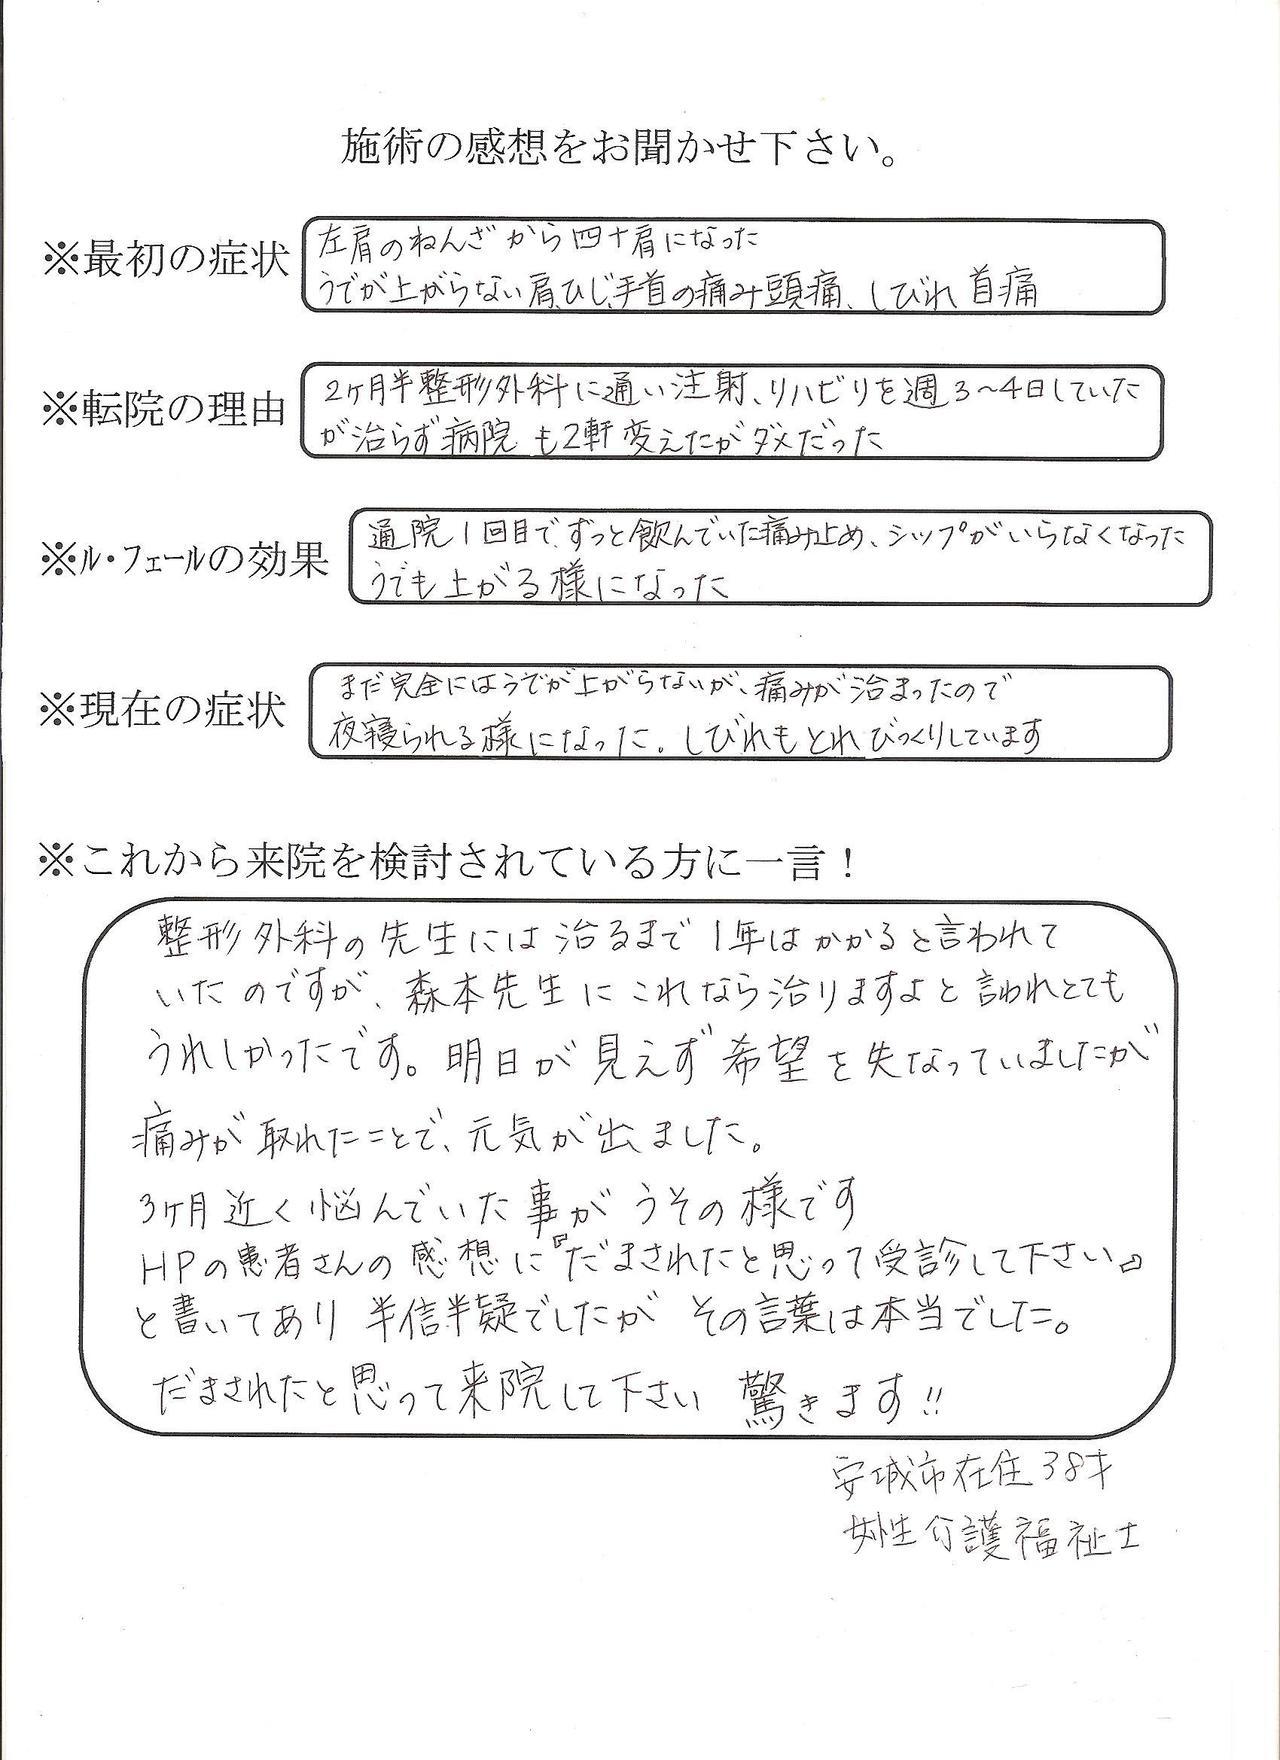 施術の感想をお聞かせ下さい。
※最初の症状
左肩のねんざから四十肩になった
うでが上がらない肩、ひじ、手首の痛み頭痛、しびれ首痛
※転院の理由
2ヶ月半整形外科に通い注射、リハビリを週3~4日していた
が治らず病院も2軒変えたがダメだった
※ル・フェールの効果
通院1回目で、ずっと飲んでいた痛み止め、シップがいらなくなった
うでも上がる様になった
※現在の症状
まだ完全にはうでが上がらないが、痛みが治まったので
夜寝られる様になった。しびれもとれびっくりしています
※これから来院を検討されている方に一言!
整形外科の先生には治るまで1年はかかると言われて
いたのですが、森本先生にこれなら治りますよと言われとても
うれしかったです。明日が見えず希望を失なっていましたが
痛みが取れたことで、元気が出ました。
3ヶ月近く悩んでいた事がうその様です
HPの患者さんの感想に『だまされたと思って受診して下さい』
と書いてあり半信半疑でしたがその言葉は本当でした。
だまされたと思って来院して下さい 驚きます!!
安城市在住38才
女性介護福祉士